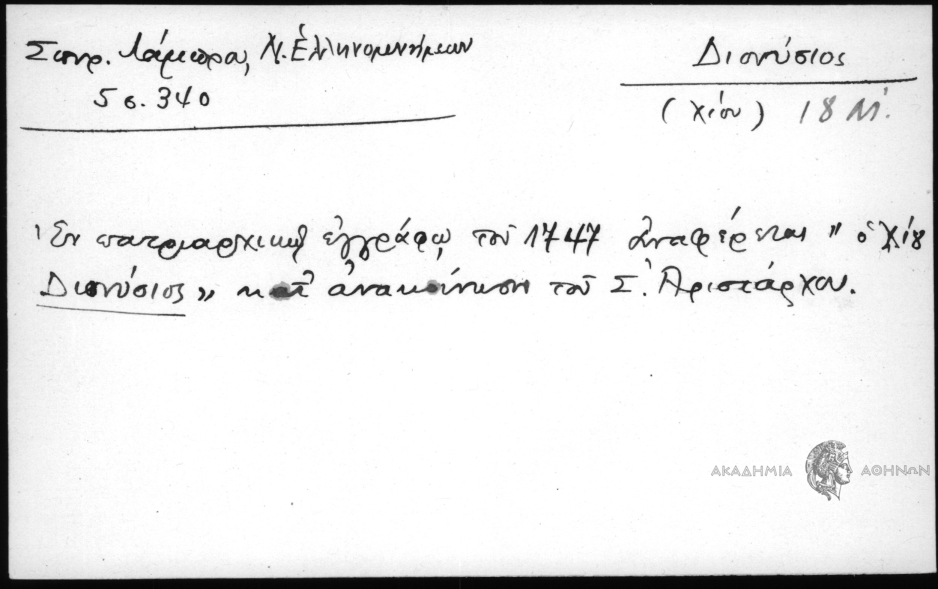 Σπυρ. Λάμπρου, Ν. Ἑλληνομνήμων
5 σ. 340
Διονύσιος
(Χίου) 18 Μ.
Ἐν πατριαρχικῷ ἐγγράφῳ τοῦ 1747 ἀναφέρεται "ὁ Χίου
Διονύσιος" κατ' ἀνακοίνωσιν τοῦ Σ. Ἀριστάρχου.
ΑΚΑΔΗΜΙΑ ΑΘΗΝΩΝ